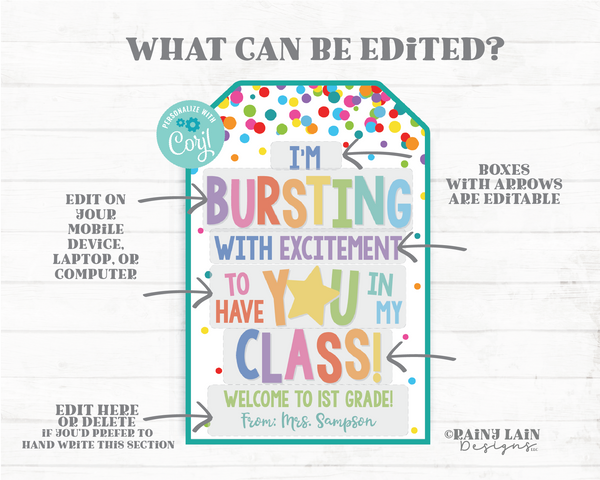 WHAT CAN BE EDITED?
PERSONALIZE WITH
Corjl
I'M
BURSTING
WITH EXCITEMENT
TO HAVE YOU IN MY
CLASS!
WELCOME TO 1ST GRADE!
From: Mrs. Sampson
BOXES
WITH ARROWS
ARE EDITABLE
EDIT ON
YOUR
MOBILE
DEVICE,
LAPTOP, OR
COMPUTER
EDIT HERE
OR DELETE
IF YOU'D PREFER TO
HAND WRITE THIS SECTION
©RAINY LAIN
Designs LLC